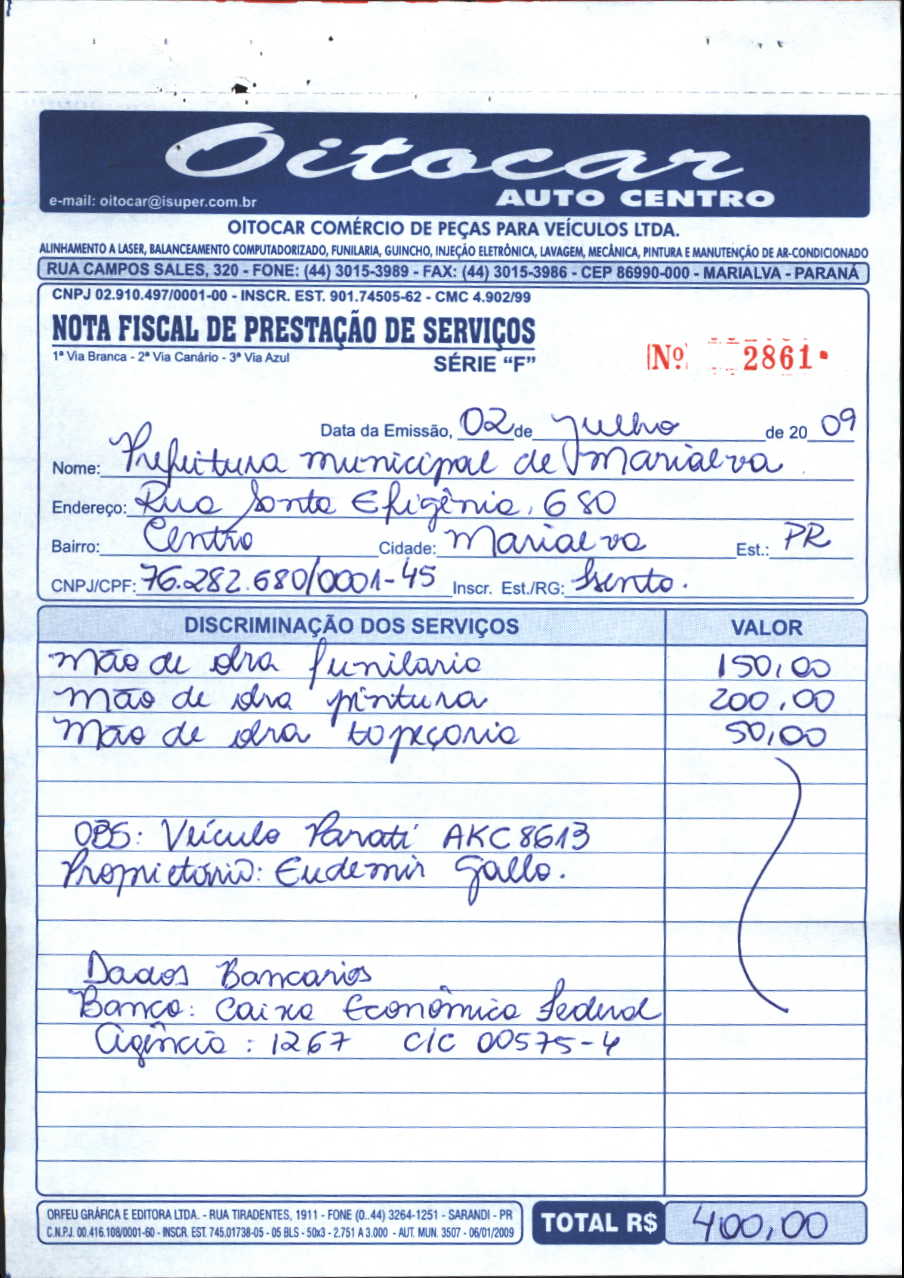 Oitocar
AUTO CENTRO
e-mail: oitocar@isuper.com.br
OITOCAR COMÉRCIO DE PEÇAS PARA VEÍCULOS LTDA.
ALINHAMENTO A LASER, BALANCEAMENTO COMPUTADORIZADO, FUNILARIA, GUINCHO, INJEÇÃO ELETRÔNICA, LAVAGEM, MECÂNICA, PINTURA E MANUTENÇÃO DE AR-CONDICIONADO
RUA CAMPOS SALES, 320 - FONE: (44) 3015-3989 - FAX: (44) 3015-3986 - CEP 86990-000 - MARIALVA - PARANÁ
CNPJ 02.910.497/0001-00 - INSCR. EST. 901.74505-62 - CMC 4.902/99
NOTA FISCAL DE PRESTAÇÃO DE SERVIÇOS
1ª Via Branca - 2ª Via Canário - 3ª Via Azul SÉRIE "F"
Nº 2861
Data da Emissão, 02 de Julho de 20 09
Nome: Prefeitura municipal de Marialva
Endereço: Rua Santa Efigênia, 680
Bairro: Centro Cidade: Marialva Est.: PR
CNPJ/CPF: 76.282.680/0001-45 Inscr. Est./RG: Isento.
DISCRIMINAÇÃO DOS SERVIÇOS VALOR
Mão de obra funilaria 150,00
Mão de obra pintura 200,00
Mão de obra tapeçaria 50,00
OBS: Veículo Parati AKC8613
Proprietário: Eudemir Gallo.
Dados Bancarios
Banco: Caixa Econômica Federal
Agência: 1267 C/C 00575-4
ORFEU GRÁFICA E EDITORA LTDA. - RUA TIRADENTES, 1911 - FONE (0..44) 3264-1251 - SARANDI - PR
C.N.P.J. 00.416.108/0001-60 - INSCR. EST. 745.01738-05 - 05 BLS - 50x3 - 2.751 A 3.000 - AUT. MUN. 3507 - 06/01/2009
TOTAL R$ 400,00